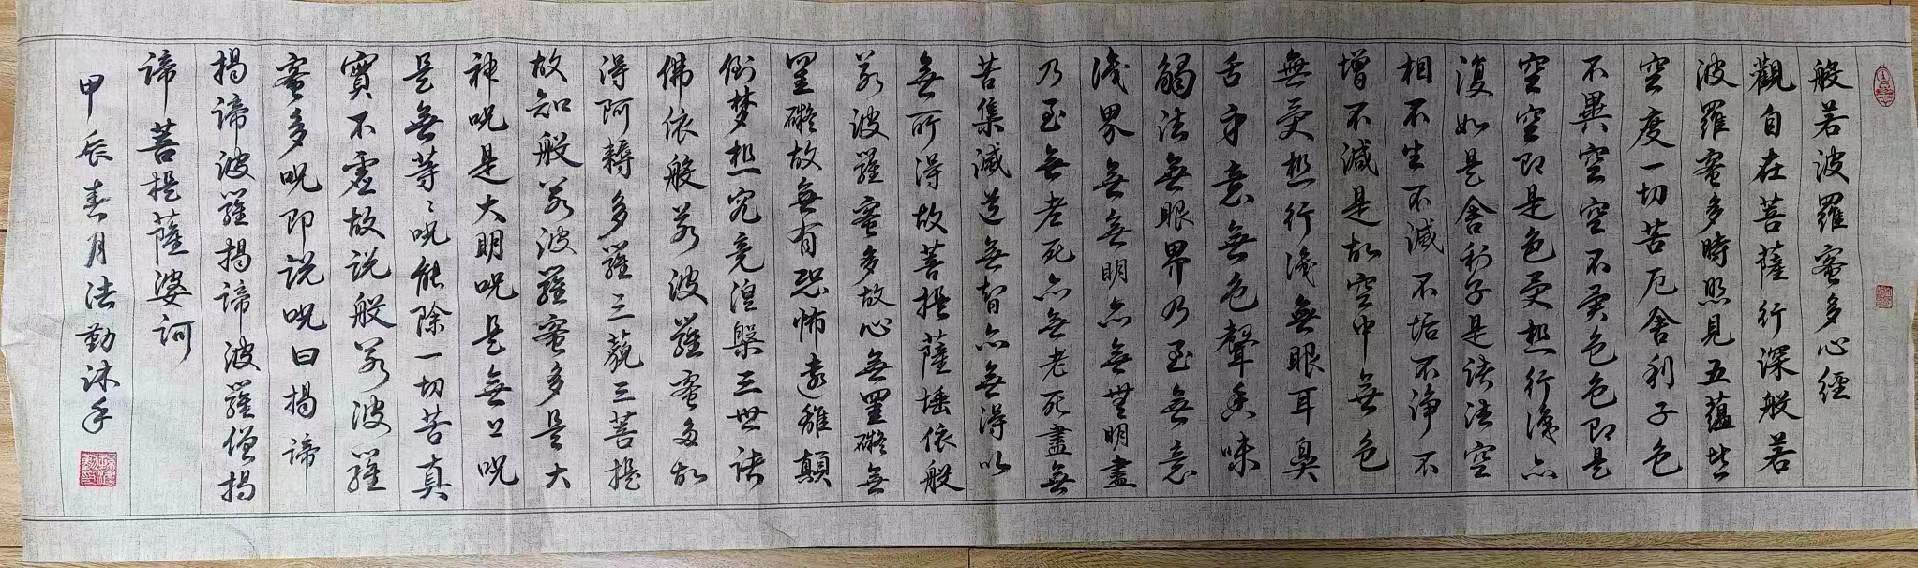 般若波羅蜜多心經
觀自在菩薩行深般若
波羅蜜多時照見五蘊皆
空度一切苦厄舍利子色
不異空空不異色色即是
空空即是色受想行識亦
復如是舍利子是諸法空
相不生不滅不垢不淨不
增不減是故空中無色
無受想行識無眼耳鼻
舌身意無色聲香味
觸法無眼界乃至無意
識界無無明亦無無明盡
乃至無老死亦無老死盡無
苦集滅道無智亦無得以
無所得故菩提薩埵依般
若波羅蜜多故心無罣礙無
罣礙故無有恐怖遠離顛
倒夢想究竟涅槃三世諸
佛依般若波羅蜜多故
得阿耨多羅三藐三菩提
故知般若波羅蜜多是大
神咒是大明咒是無上咒
是無等等咒能除一切苦真
實不虛故說般若波羅
蜜多咒即說咒曰揭諦
揭諦波羅揭諦波羅僧揭
諦菩提薩婆訶
甲辰春月法勤沐手